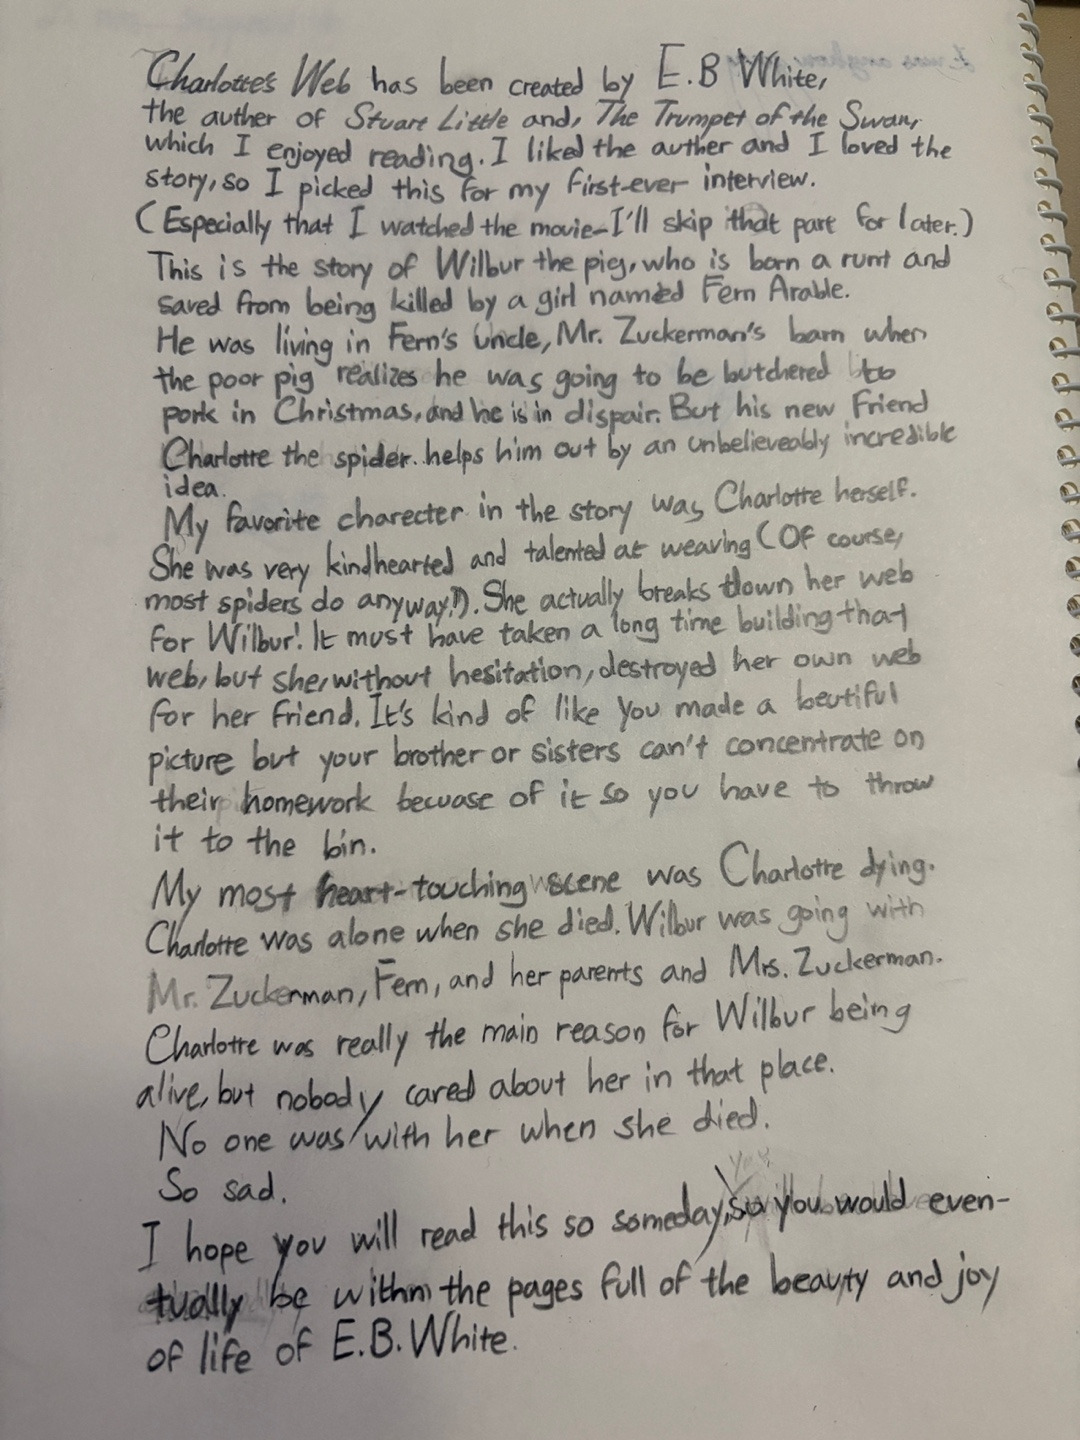 Charlotte's Web has been created by E.B White,
the auther of Stuart Little and, The Trumpet of the Swan,
which I enjoyed reading. I liked the auther and I loved the
story, so I picked this for my first-ever interview.
(Especially that I watched the movie-I'll skip that part for later.)
This is the story of Wilbur the pig, who is born a runt and
saved from being killed by a girl named Fern Arable.
He was living in Fern's Uncle, Mr. Zuckerman's barn when
the poor pig realizes he was going to be butchered to
pork in Christmas, and he is in dispair. But his new friend
Charlotte the spider helps him out by an unbelieveably incredible
idea.
My favorite charecter in the story was Charlotte herself.
She was very kindhearted and talented at weaving (Of course,
most spiders do anyway!?). She actually breaks down her web
for Wilbur! It must have taken a long time building that
web, but she, without hesitation, destroyed her own web
for her friend. It's kind of like you made a beutiful
picture but your brother or sisters can't concentrate on
their homework becuase of it so you have to throw
it to the bin.
My most heart-touching scene was Charlotte dying.
Charlotte was alone when she died. Wilbur was going with
Mr. Zuckerman, Fern, and her parents and Mrs. Zuckerman.
Charlotte was really the main reason for Wilbur being
alive, but nobody cared about her in that place.
No one was with her when she died.
So sad.
I hope you will read this so someday, so you would even-
tually be within the pages full of the beauty and joy
of life of E.B. White.